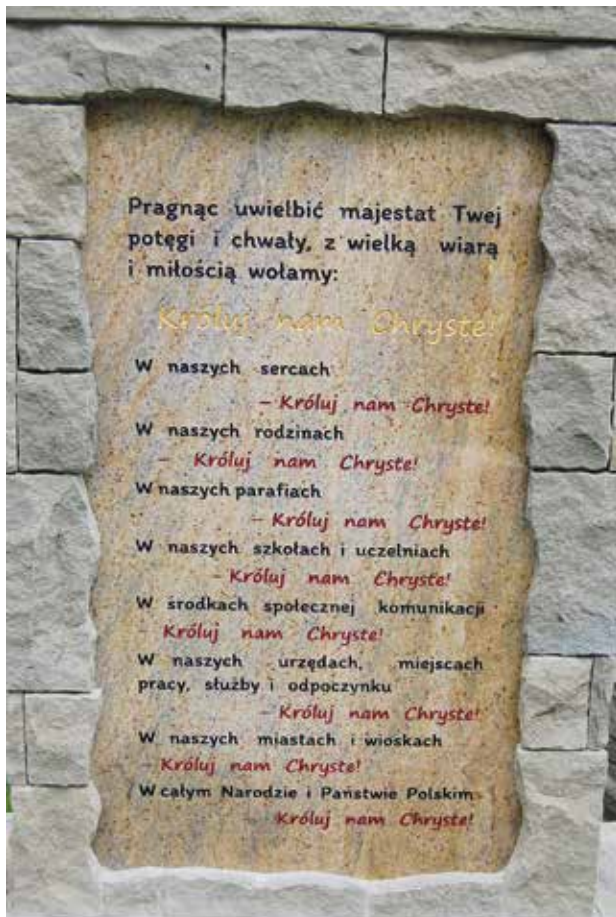 Pragnąc uwielbić majestat Twej
potęgi i chwały, z wielką wiarą
i miłością wołamy:
Króluj nam Chryste!
W naszych sercach
– Króluj nam Chryste!
W naszych rodzinach
– Króluj nam Chryste!
W naszych parafiach
– Króluj nam Chryste!
W naszych szkołach i uczelniach
– Króluj nam Chryste!
W środkach społecznej komunikacji
– Króluj nam Chryste!
W naszych urzędach, miejscach
pracy, służby i odpoczynku
– Króluj nam Chryste!
W naszych miastach i wioskach
– Króluj nam Chryste!
W całym Narodzie i Państwie Polskim
– Króluj nam Chryste!